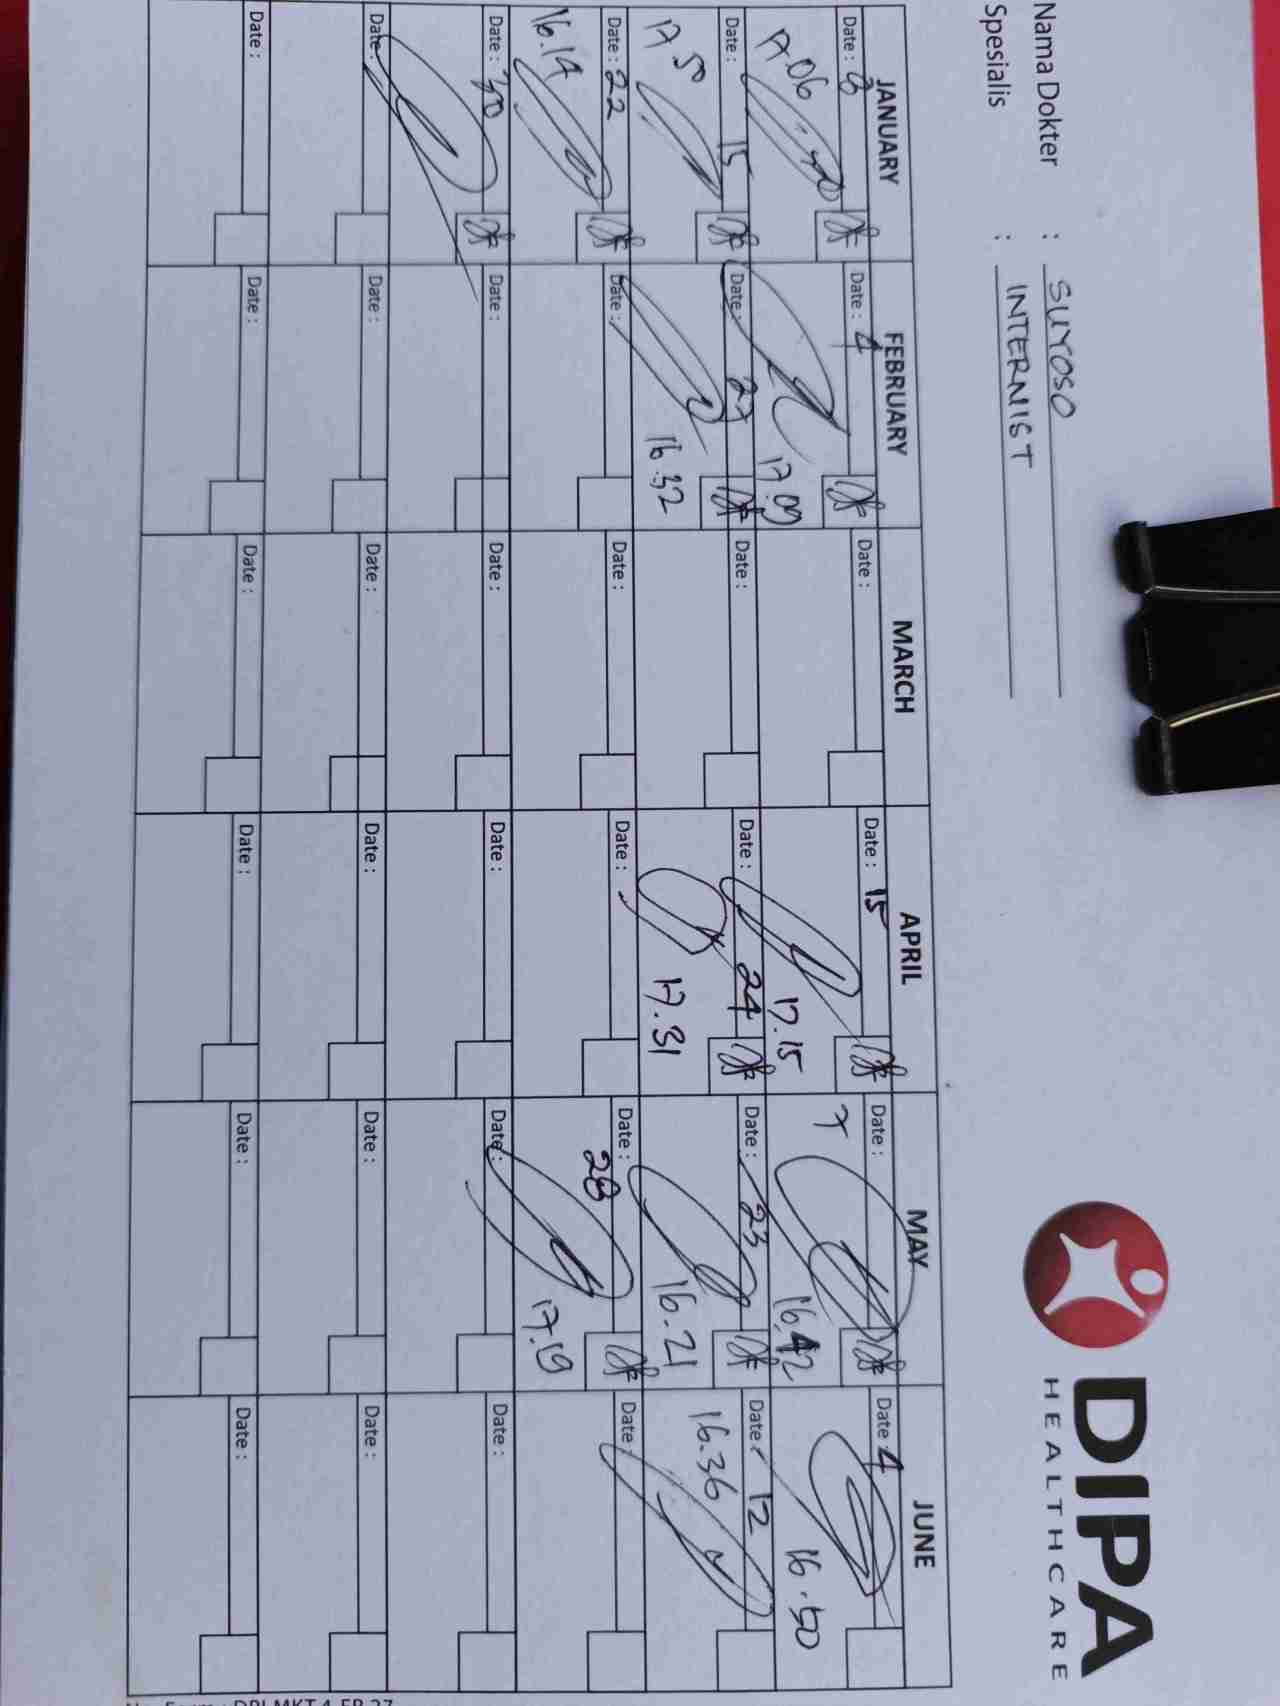 DIPA
HEALTHCARE
Nama Dokter : SUYOSO
Spesialis : INTERNIST
JANUARY FEBRUARY MARCH APRIL MAY JUNE
Date : 8 Date : 4 Date : Date : 15 Date : Date 4
17.06 17.09 17.15 7 16.42 16.50
Date : 15 Date : 27 Date : Date : 24 Date : 23 Date : 12
17.50 16.32 17.31 16.21 16.36
Date : 22 Date : Date : Date : Date : 28 Date :
16.14 17.19
Date : 30 Date : Date : Date : Date : Date :
Date : Date : Date : Date : Date : Date :
Date : Date : Date : Date : Date : Date :